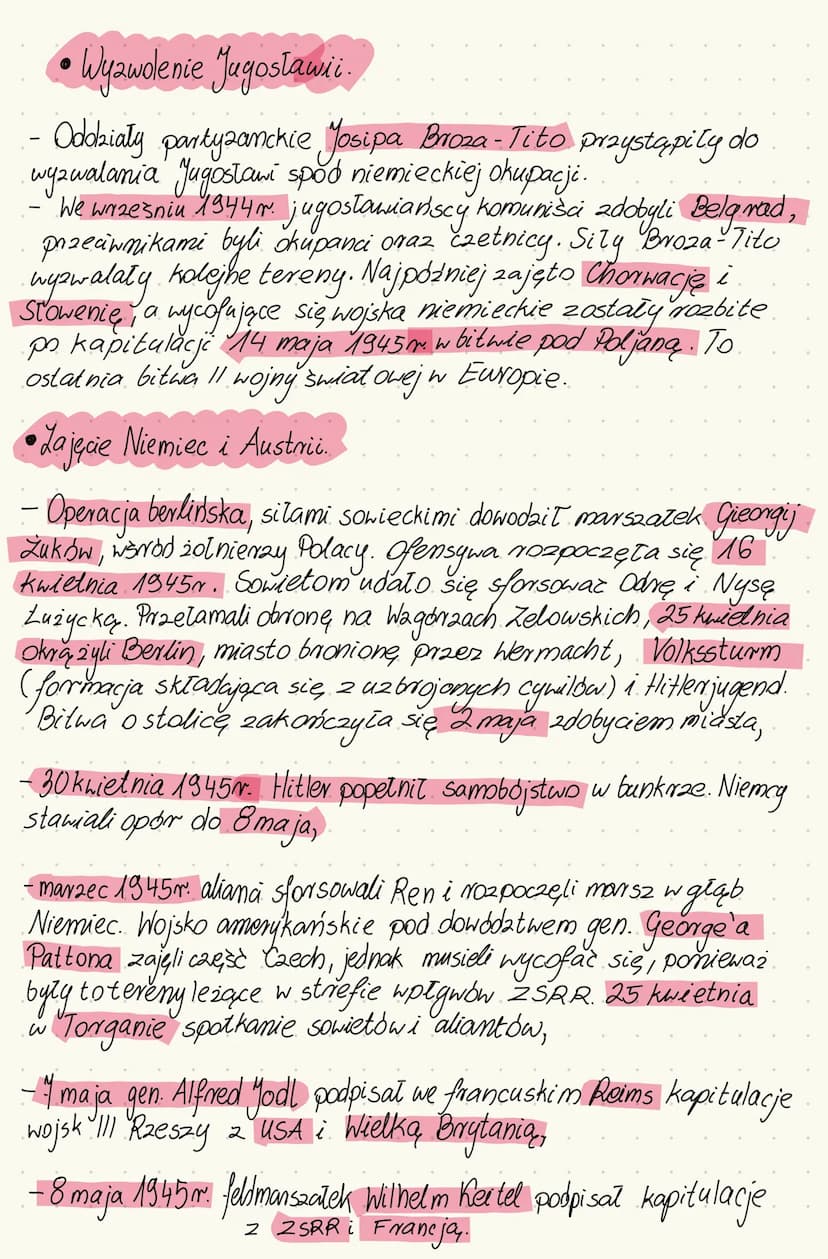 • Wyzwolenie Jugosławii.
- Oddziały partyzanckie Josipa Broza-Tito przystąpiły do
wyzwalania Jugosławi spod niemieckiej okupacji.
- We wrześniu 1944r. jugosławiańscy komuniści zdobyli Belgrad,
przeciwnikami byli okupanci oraz czetnicy. Siły Broza-Tito
wyzwalały kolejne tereny. Najpóźniej zajęto Chorwację i
Słowenię, a wycofujące się wojska niemieckie zostały rozbite
po kapitulacji 14 maja 1945r. w bitwie pod Poljaną. To
ostatnia bitwa II wojny światowej w Europie.
• Zajęcie Niemiec i Austrii.
- Operacja berlińska, siłami sowieckimi dowodził marszałek Gieorgij
Żuków, wśród żołnierzy Polacy. Ofensywa rozpoczęła się 16
kwietnia 1945r. Sowietom udało się sforsować Odrę i Nysę
Łużycką. Przełamali obronę na Wzgórzach Zelowskich, 25 kwietnia
okrążyli Berlin, miasto bronione przez Wermacht, Volkssturm
(formacja składająca się z uzbrojonych cywilów) i Hitlerjugend.
Bitwa o stolicę zakończyła się 2 maja zdobyciem miasta,
- 30 kwietnia 1945r. Hitler popełnił samobójstwo w bunkrze. Niemcy
stawiali opór do 8 maja,
- marzec 1945r. alianci sforsowali Ren i rozpoczęli marsz w głąb
Niemiec. Wojsko amerykańskie pod dowództwem gen. George'a
Pattona zajęli część Czech, jednak musieli wycofać się, ponieważ
były to tereny leżące w strefie wpływów ZSRR. 25 kwietnia
w Torganie spotkanie sowietów i aliantów,
- 7 maja gen. Alfred Jodl podpisał we francuskim Reims kapitulacje
wojsk III Rzeszy z USA i Wielką Brytanią,
- 8 maja 1945r. feldmarszałek Wilhelm Keitel podpisał kapitulacje
z ZSRR i Francją.